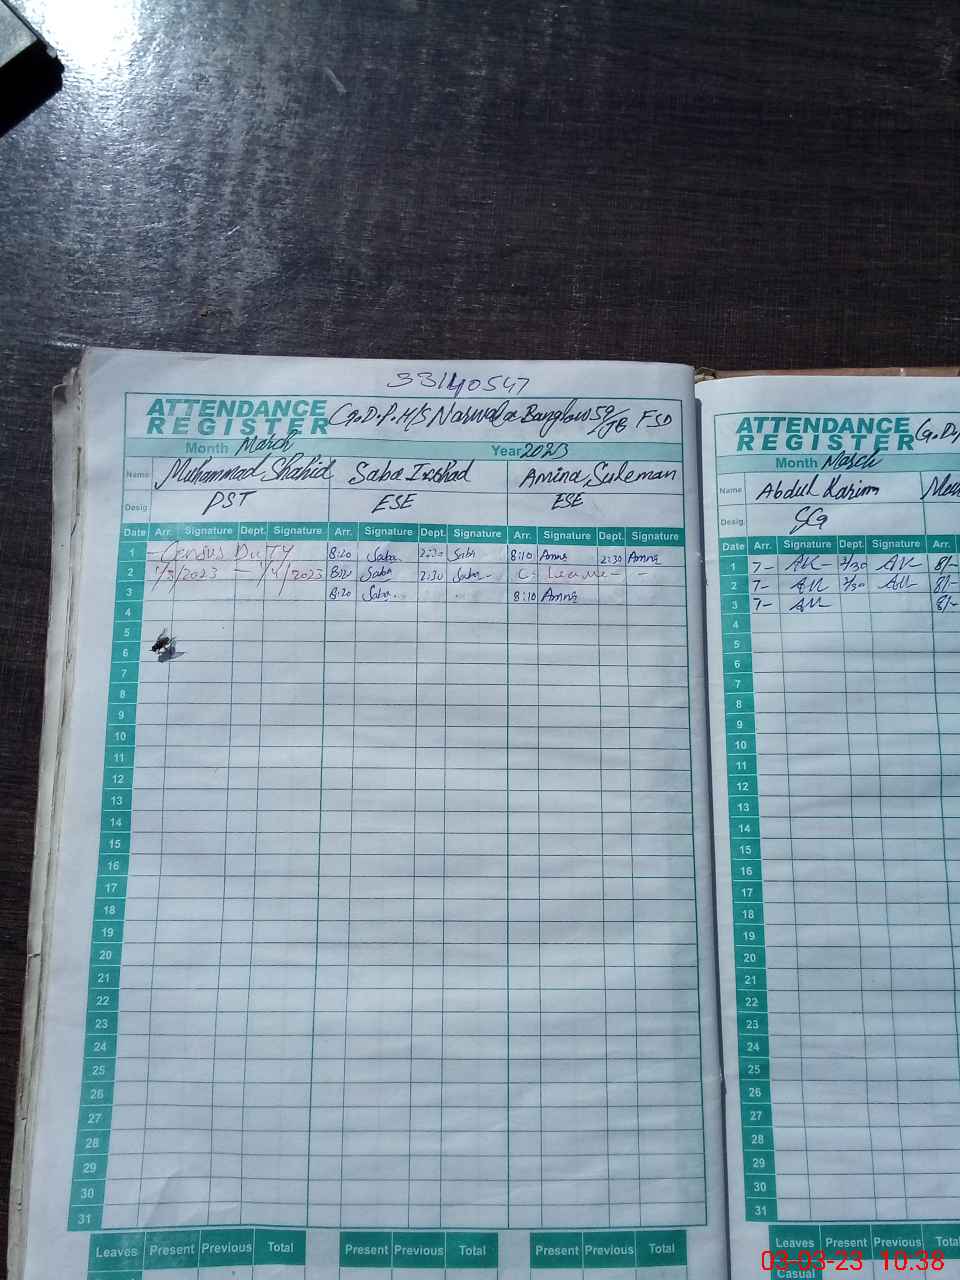 33140547
ATTENDANCE REGISTER G.D.P.H/S Narwala Banglow 59/JB FSD
Month March Year 2023
Name Muhammad Shahid Saba Irshad Amina Suleman
Desig PST ESE ESE
Date Arr. Signature Dept. Signature Arr. Signature Dept. Signature Arr. Signature Dept. Signature
1 - Census Duty 8:20 Saba 2:30 Saba 8:10 Amna 2:30 Amna
2 1/3/2023 - 1/4/2023 8:20 Saba 2:30 Saba - Leave - -
3 8:20 Saba 8:10 Amna
4
5
6
7
8
9
10
11
12
13
14
15
16
17
18
19
20
21
22
23
24
25
26
27
28
29
30
31
Leaves Present Previous Total Present Previous Total Present Previous Total
ATTENDANCE REGISTER G.D.P
Month March
Name Abdul Karim
Desig.
Date Arr. Signature Dept. Signature Arr.
1 7- AK 2/30 AK 8/-
2 7- AK 2/30 AK 8/-
3 7- AK 8/-
4
5
6
7
8
9
10
11
12
13
14
15
16
17
18
19
20
21
22
23
24
25
26
27
28
29
30
31
Leaves Present Previous Total
Casual
03-03-23 10:38